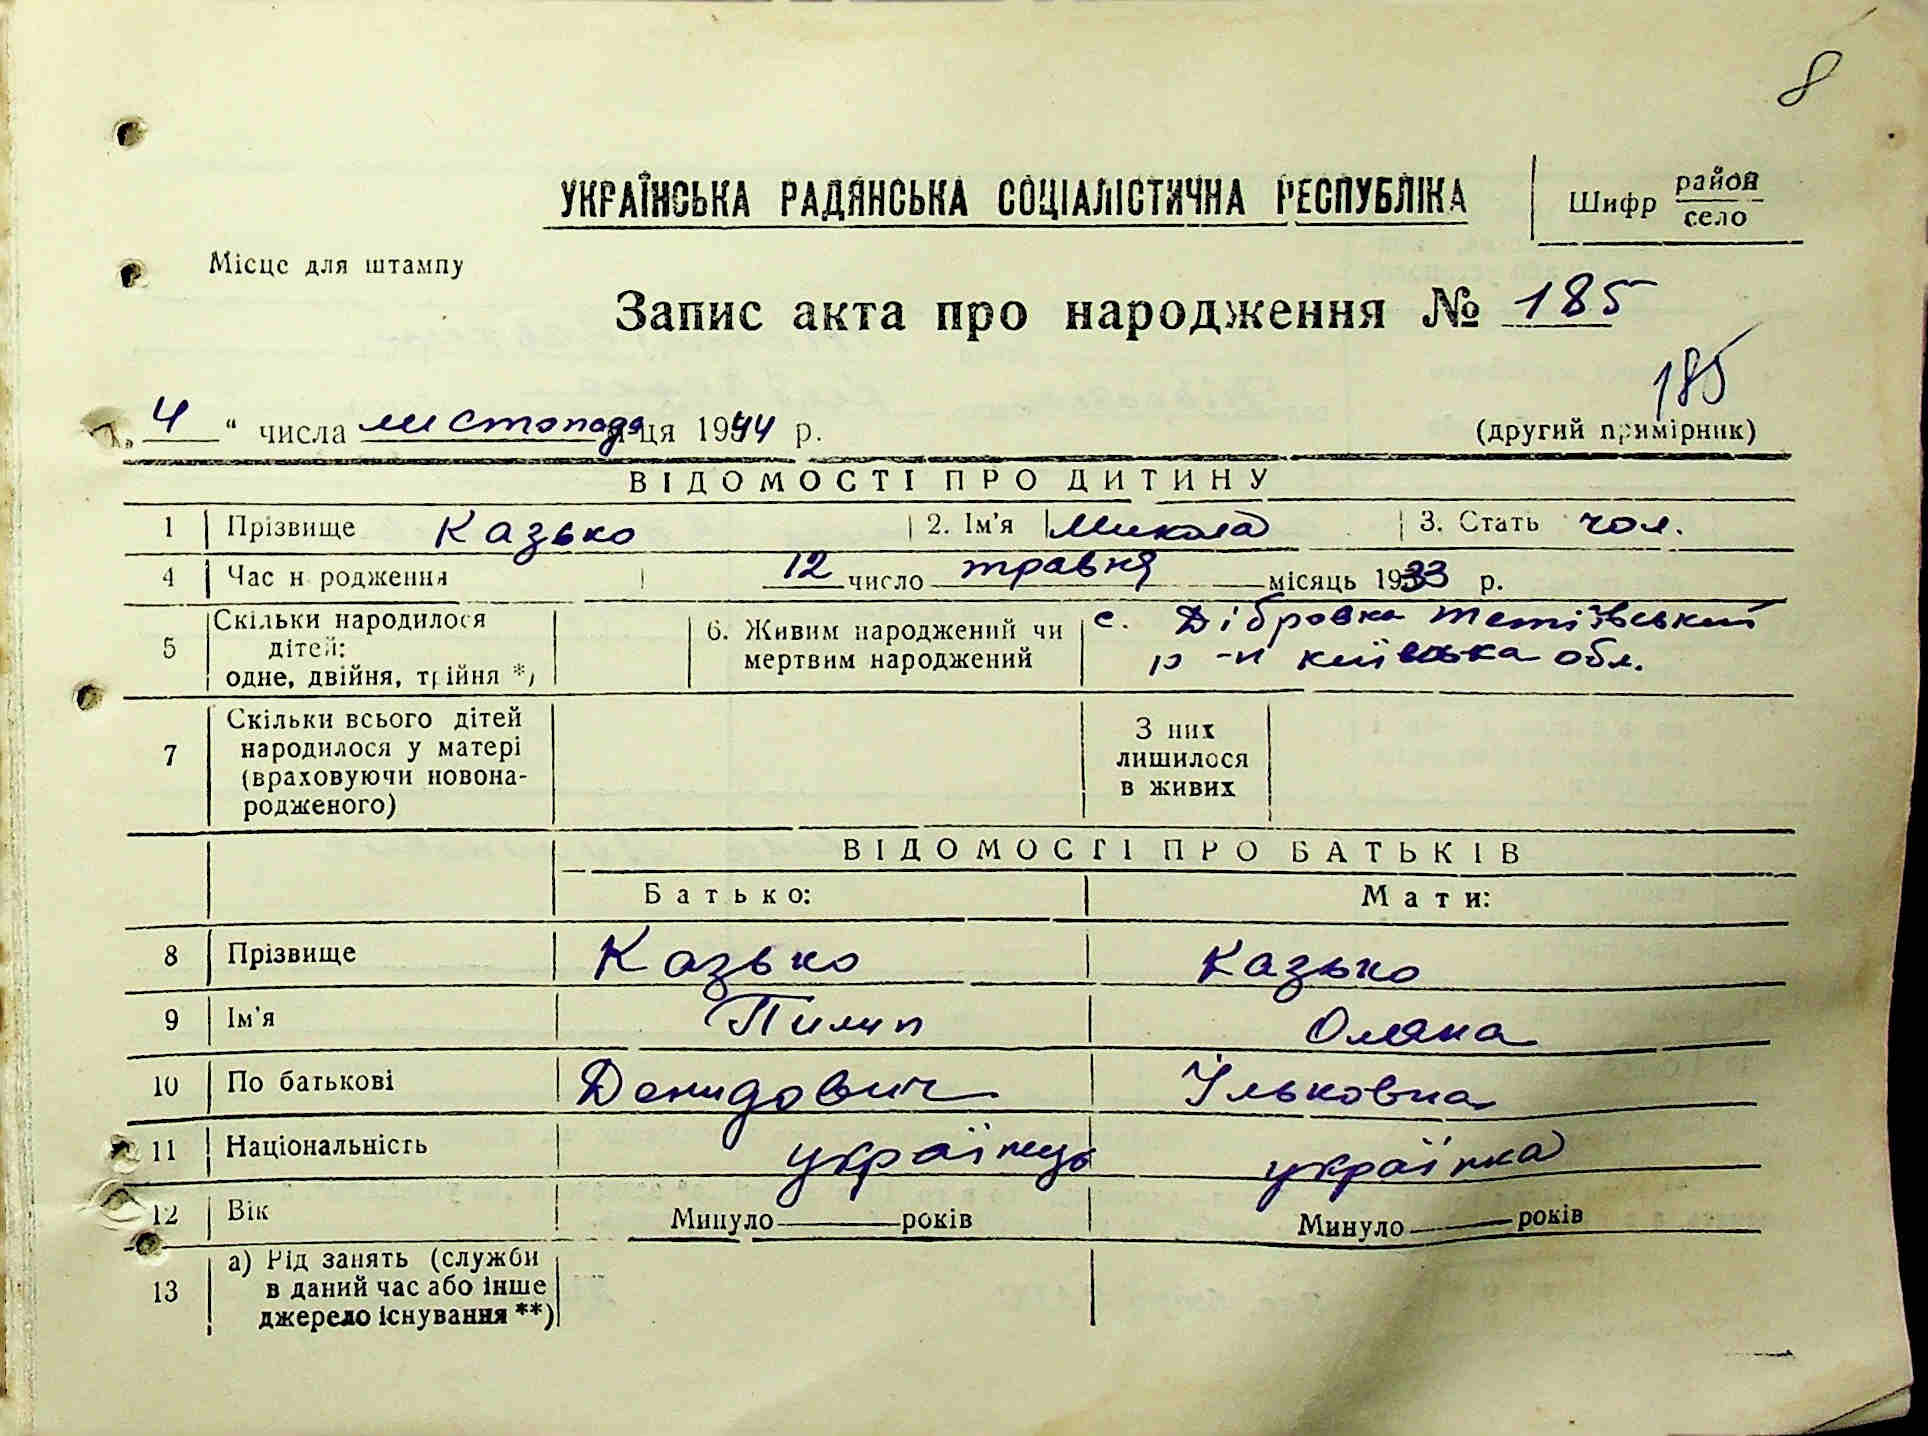 8
УКРАЇНСЬКА РАДЯНСЬКА СОЦІАЛІСТИЧНА РЕСПУБЛІКА
Шифр район
село
Місце для штампу
Запис акта про народження № 185
185
„ 4 “ числа листопада ця 1944 р. (другий примірник)
ВІДОМОСТІ ПРО ДИТИНУ
1 Прізвище Казько 2. Ім'я Микола 3. Стать чол.
4 Час н родження 12 число травня місяць 1933 р.
5 Скільки народилося дітей: одне, двійня, трійня *) 6. Живим народжений чи мертвим народжений с. Дібровка Тетіївський
р-н київська обл.
7 Скільки всього дітей народилося у матері (враховуючи новонародженого) З них лишилося в живих
ВІДОМОСТІ ПРО БАТЬКІВ
Батько: Мати:
8 Прізвище Казько Казько
9 Ім'я Пилип Оляна
10 По батькові Демидович Ільковна
11 Національність українець українка
12 Вік Минуло років Минуло років
13 а) Рід занять (служби
в даний час або інше
джерело існування **)